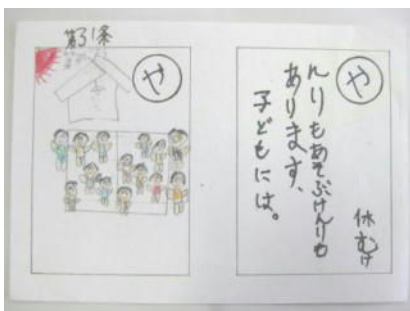 第31条
や
や
休むけ
んりもあそぶけんりも
あります、
子どもには。